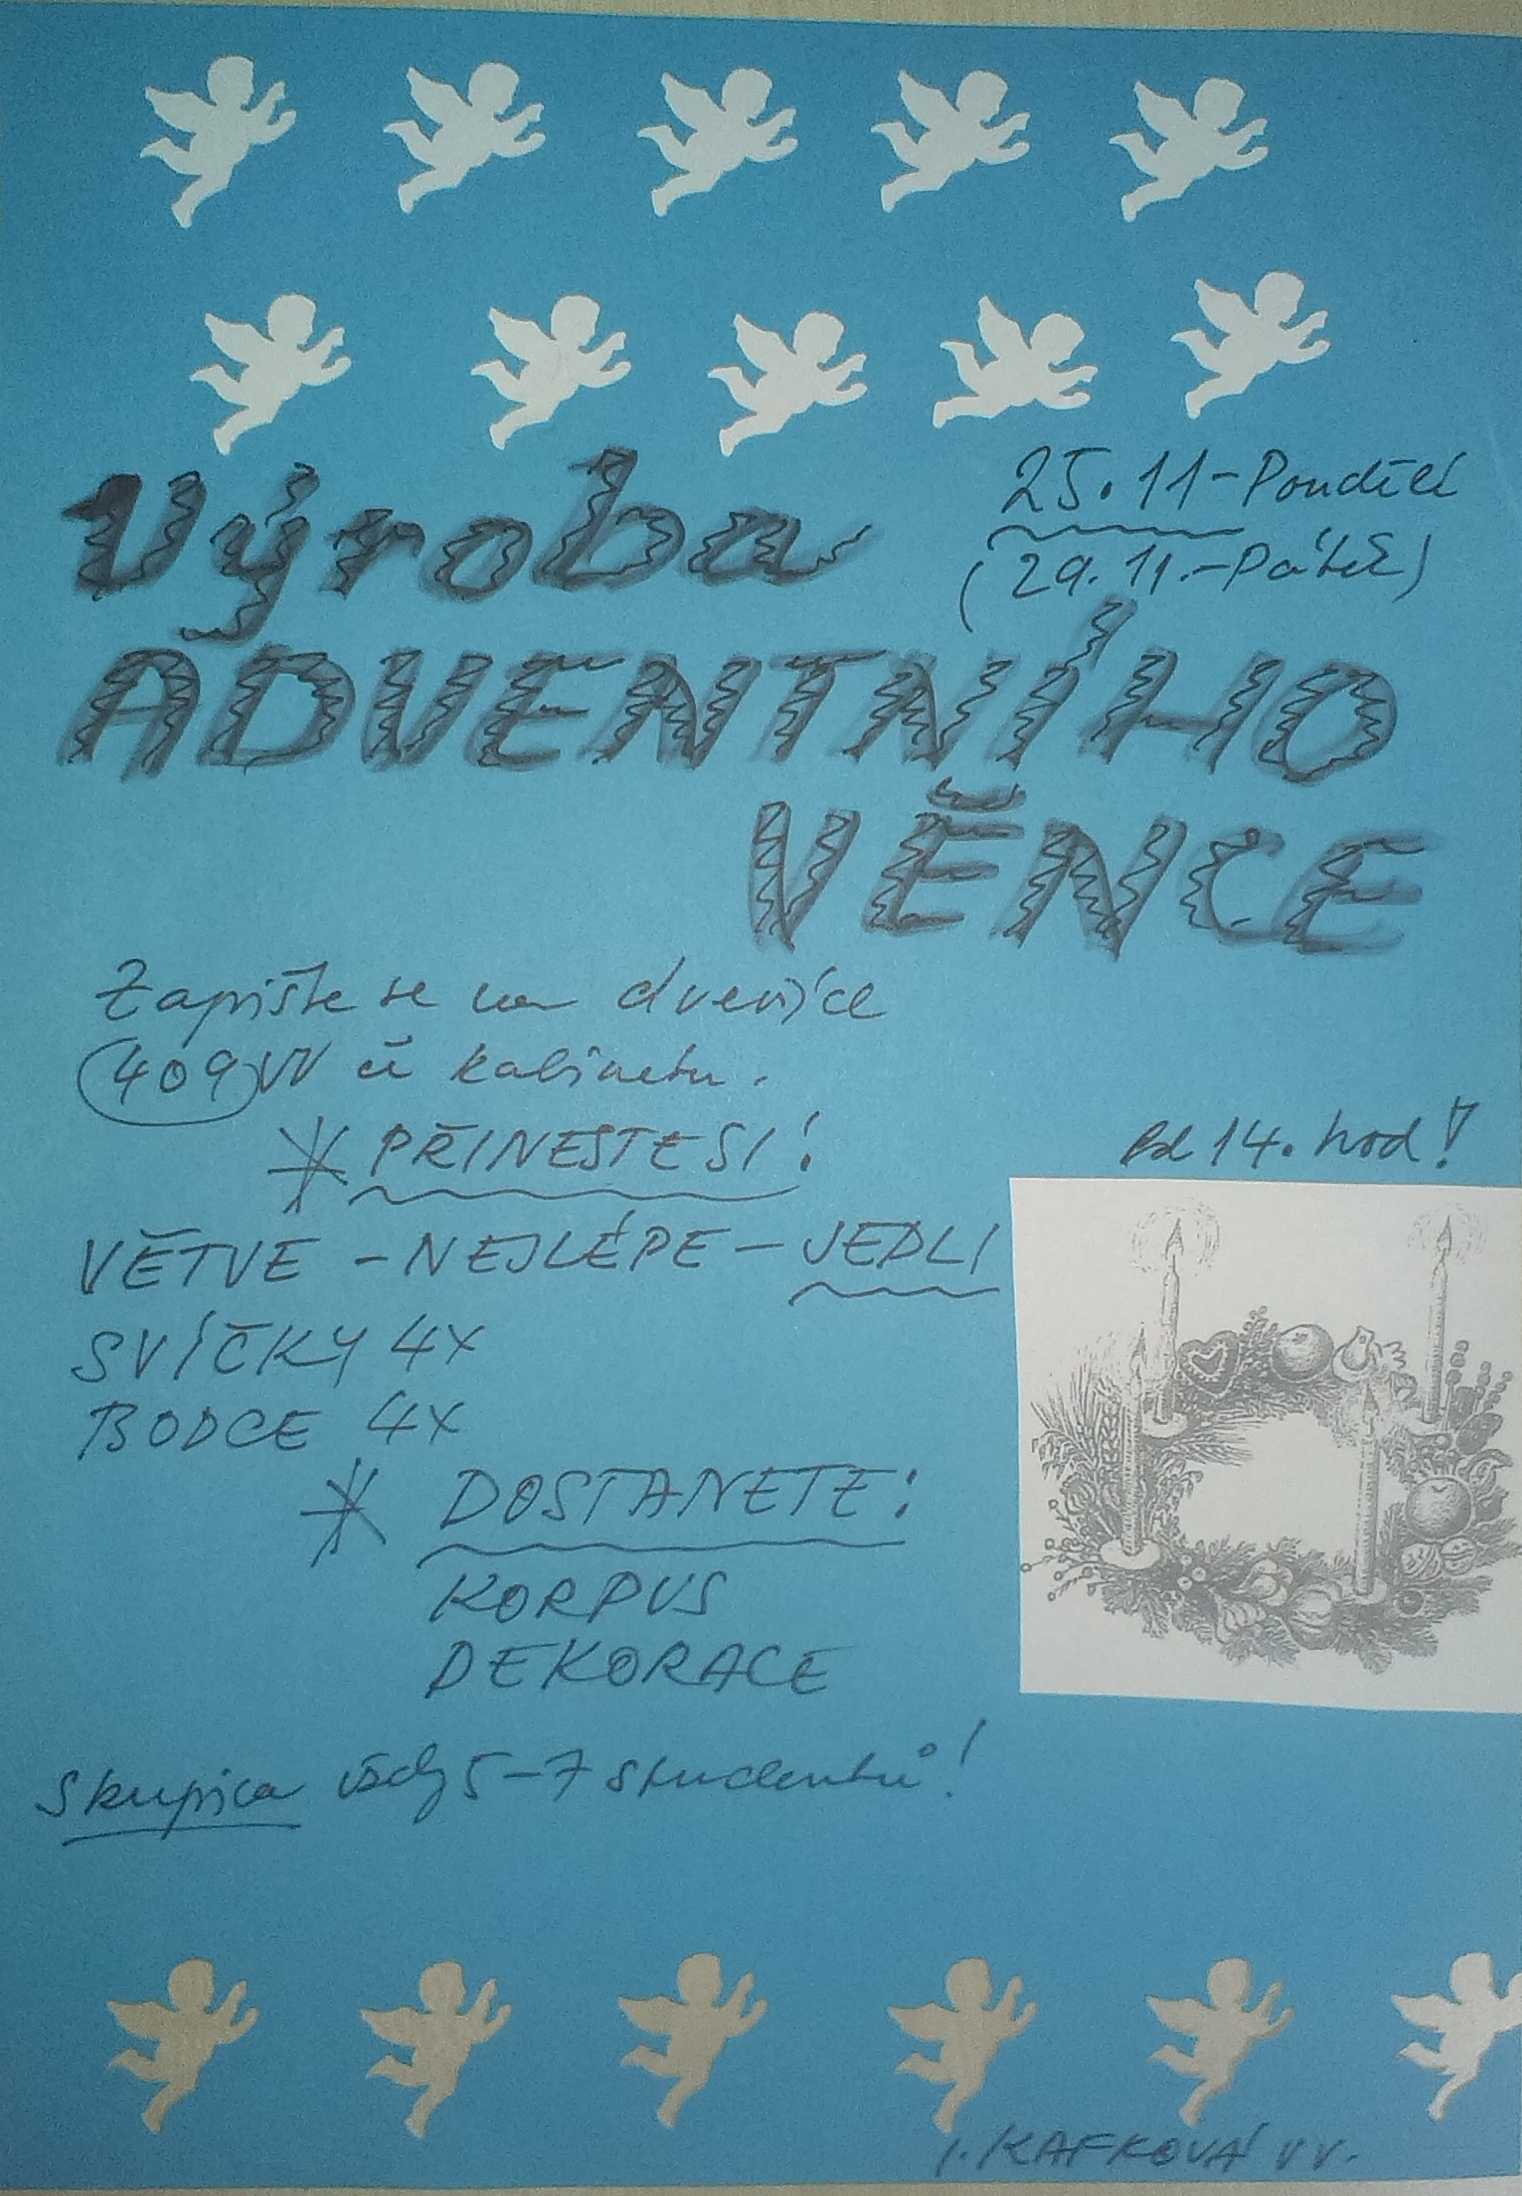 Výroba
25.11-Pondělí
(29.11.-Pátek)
ADVENTNÍHO
VĚNCE
Zapište se na dveřice
409 VV či kabinetu.
PŘINESTE SI!
od 14. hod!
VĚTVE - NEJLÉPE - JEDLI
SVÍČKY 4x
BODCE 4x
DOSTANETE:
KORPUS
DEKORACE
Skupica vždy 5-7 studentů!
I. KAFKOVÁ VV.